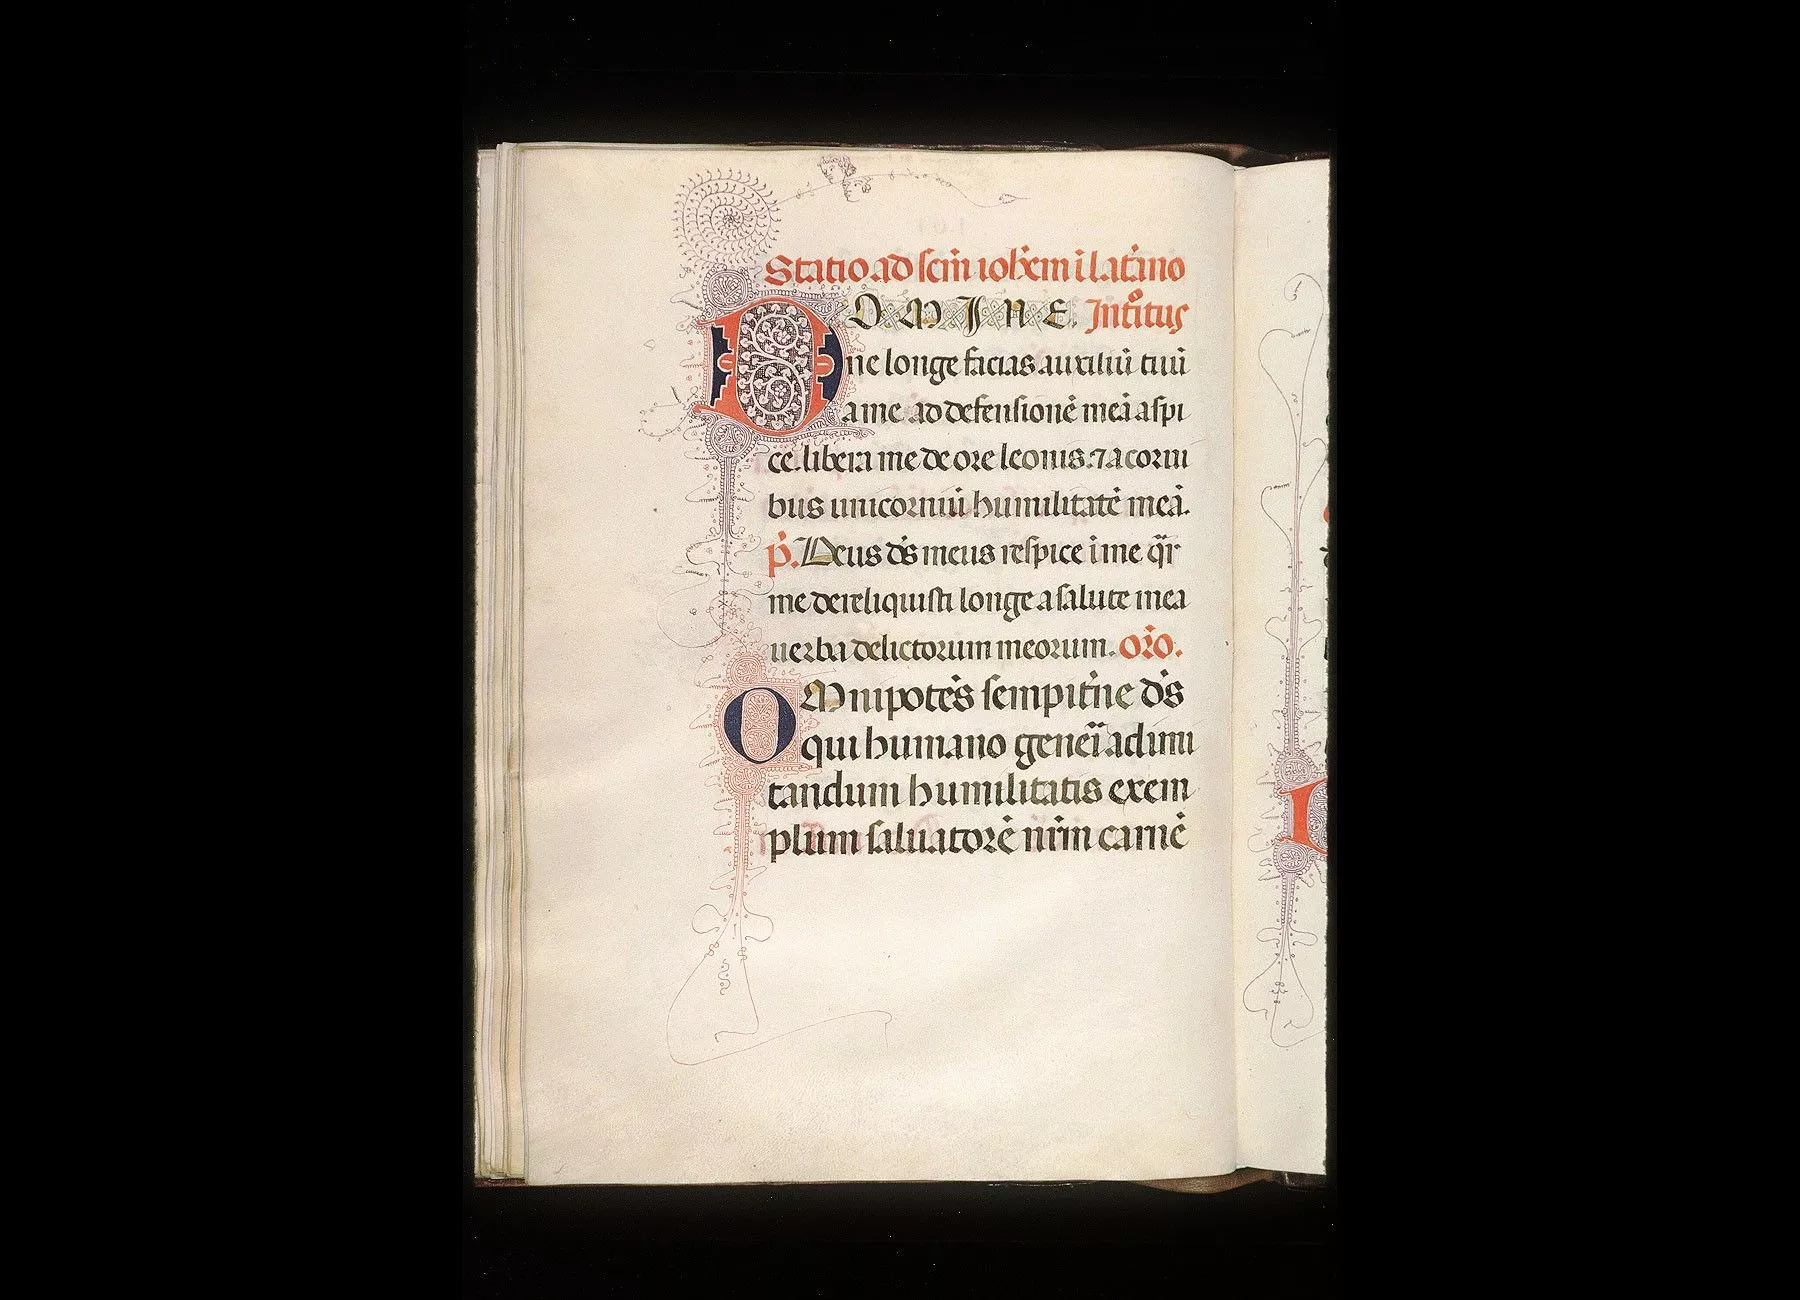 Statio ad scm̄ ioh̄em ī latino
DOMINE. Introitus
ne longe facias auxiliū tuū
a me ad defensionē meā aspi
ce. libera me de ore leonis. ⁊ a corni
bus unicorniū humilitatē meā.
p̄. Deus ds̄ meus respice ī me qr̄
me dereliquisti longe a salute mea
uerba delictorum meorum. Or̄o.
OMnipotēs sempit̄ne ds̄
qui humano geneī ad imi
tandum humilitatis exem
plum saluatorē nr̄m carnē